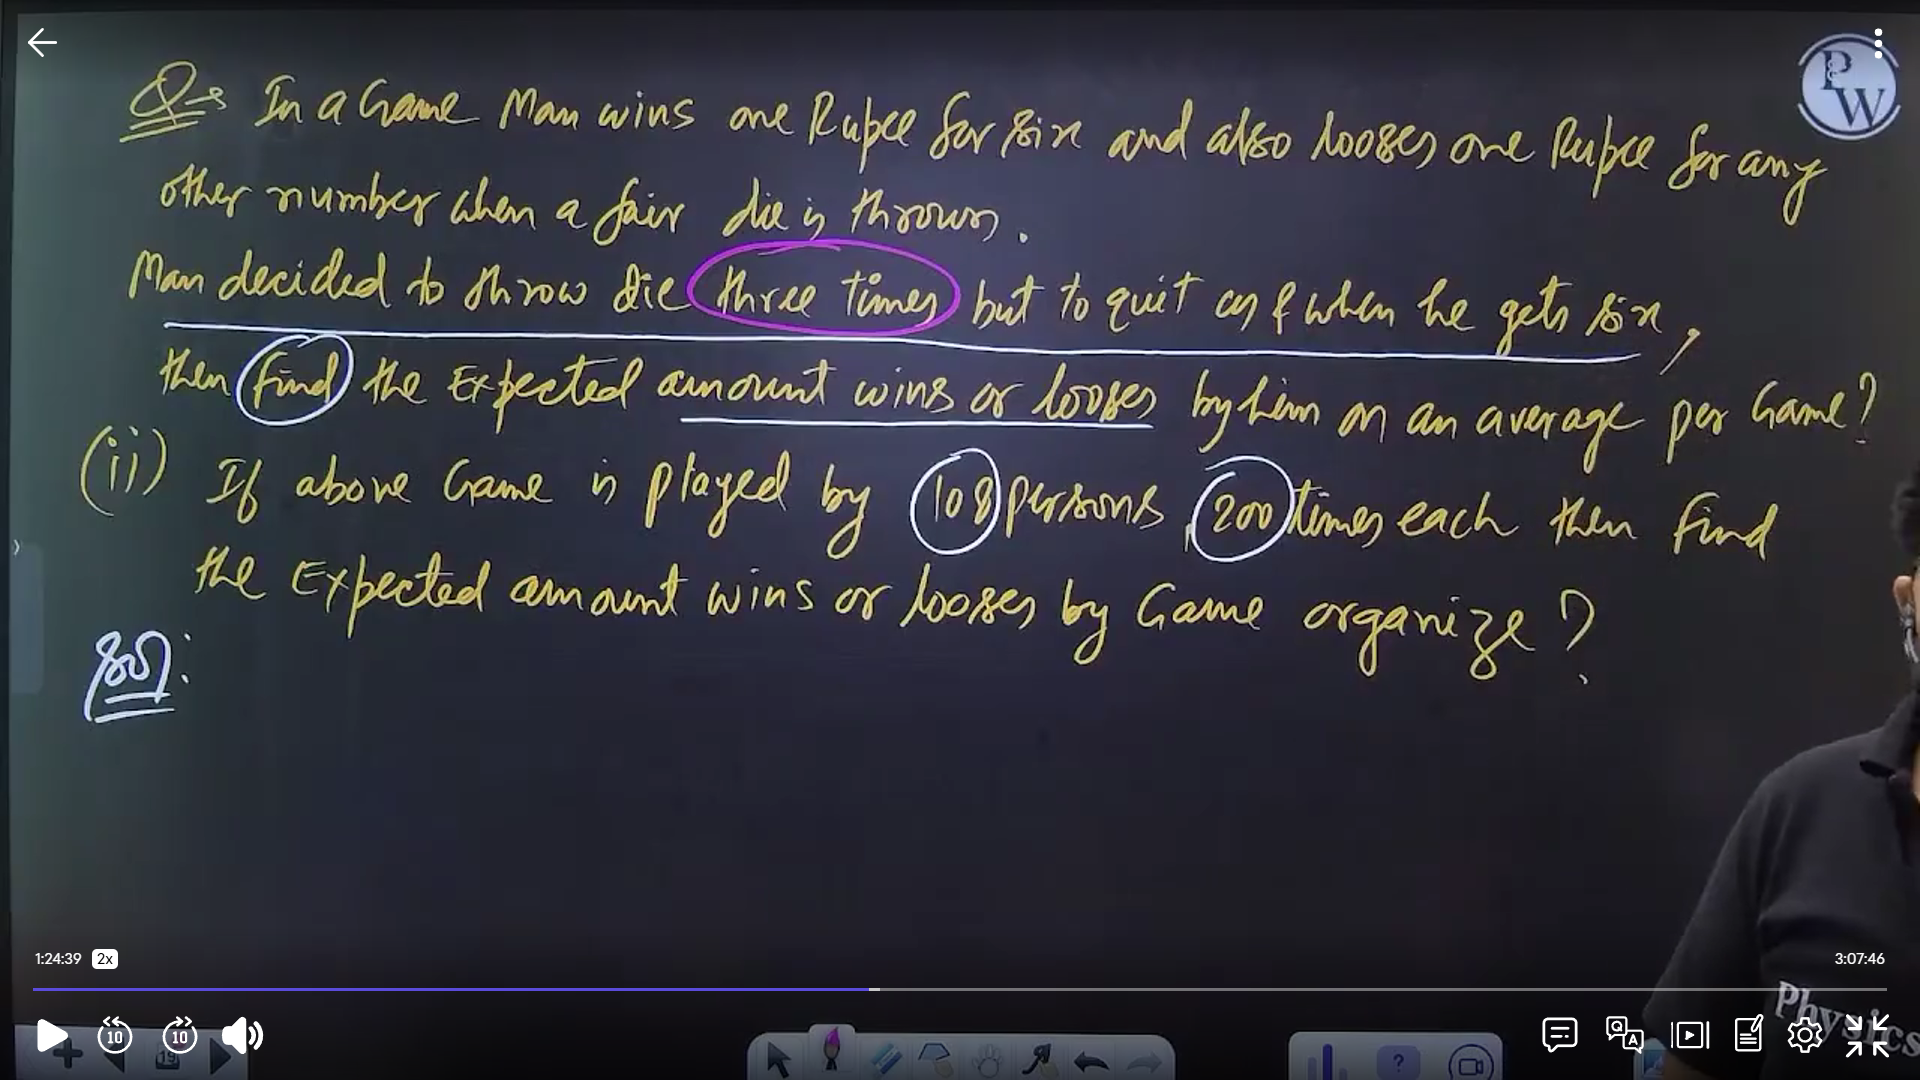 Q→ In a Game Man wins one Rupee for six and also looses one Rupee for any
other number when a fair die is thrown.
Man decided to throw die three times but to quit as & when he gets six,
then find the Expected amount wins or looses by him on an average per Game?
(ii) If above Game is played by 108 persons, 200 times each then find
the Expected amount wins or looses by Game organize?
Sol:
PW
1:24:39 2x
3:07:46
10 10
19
?
Physics